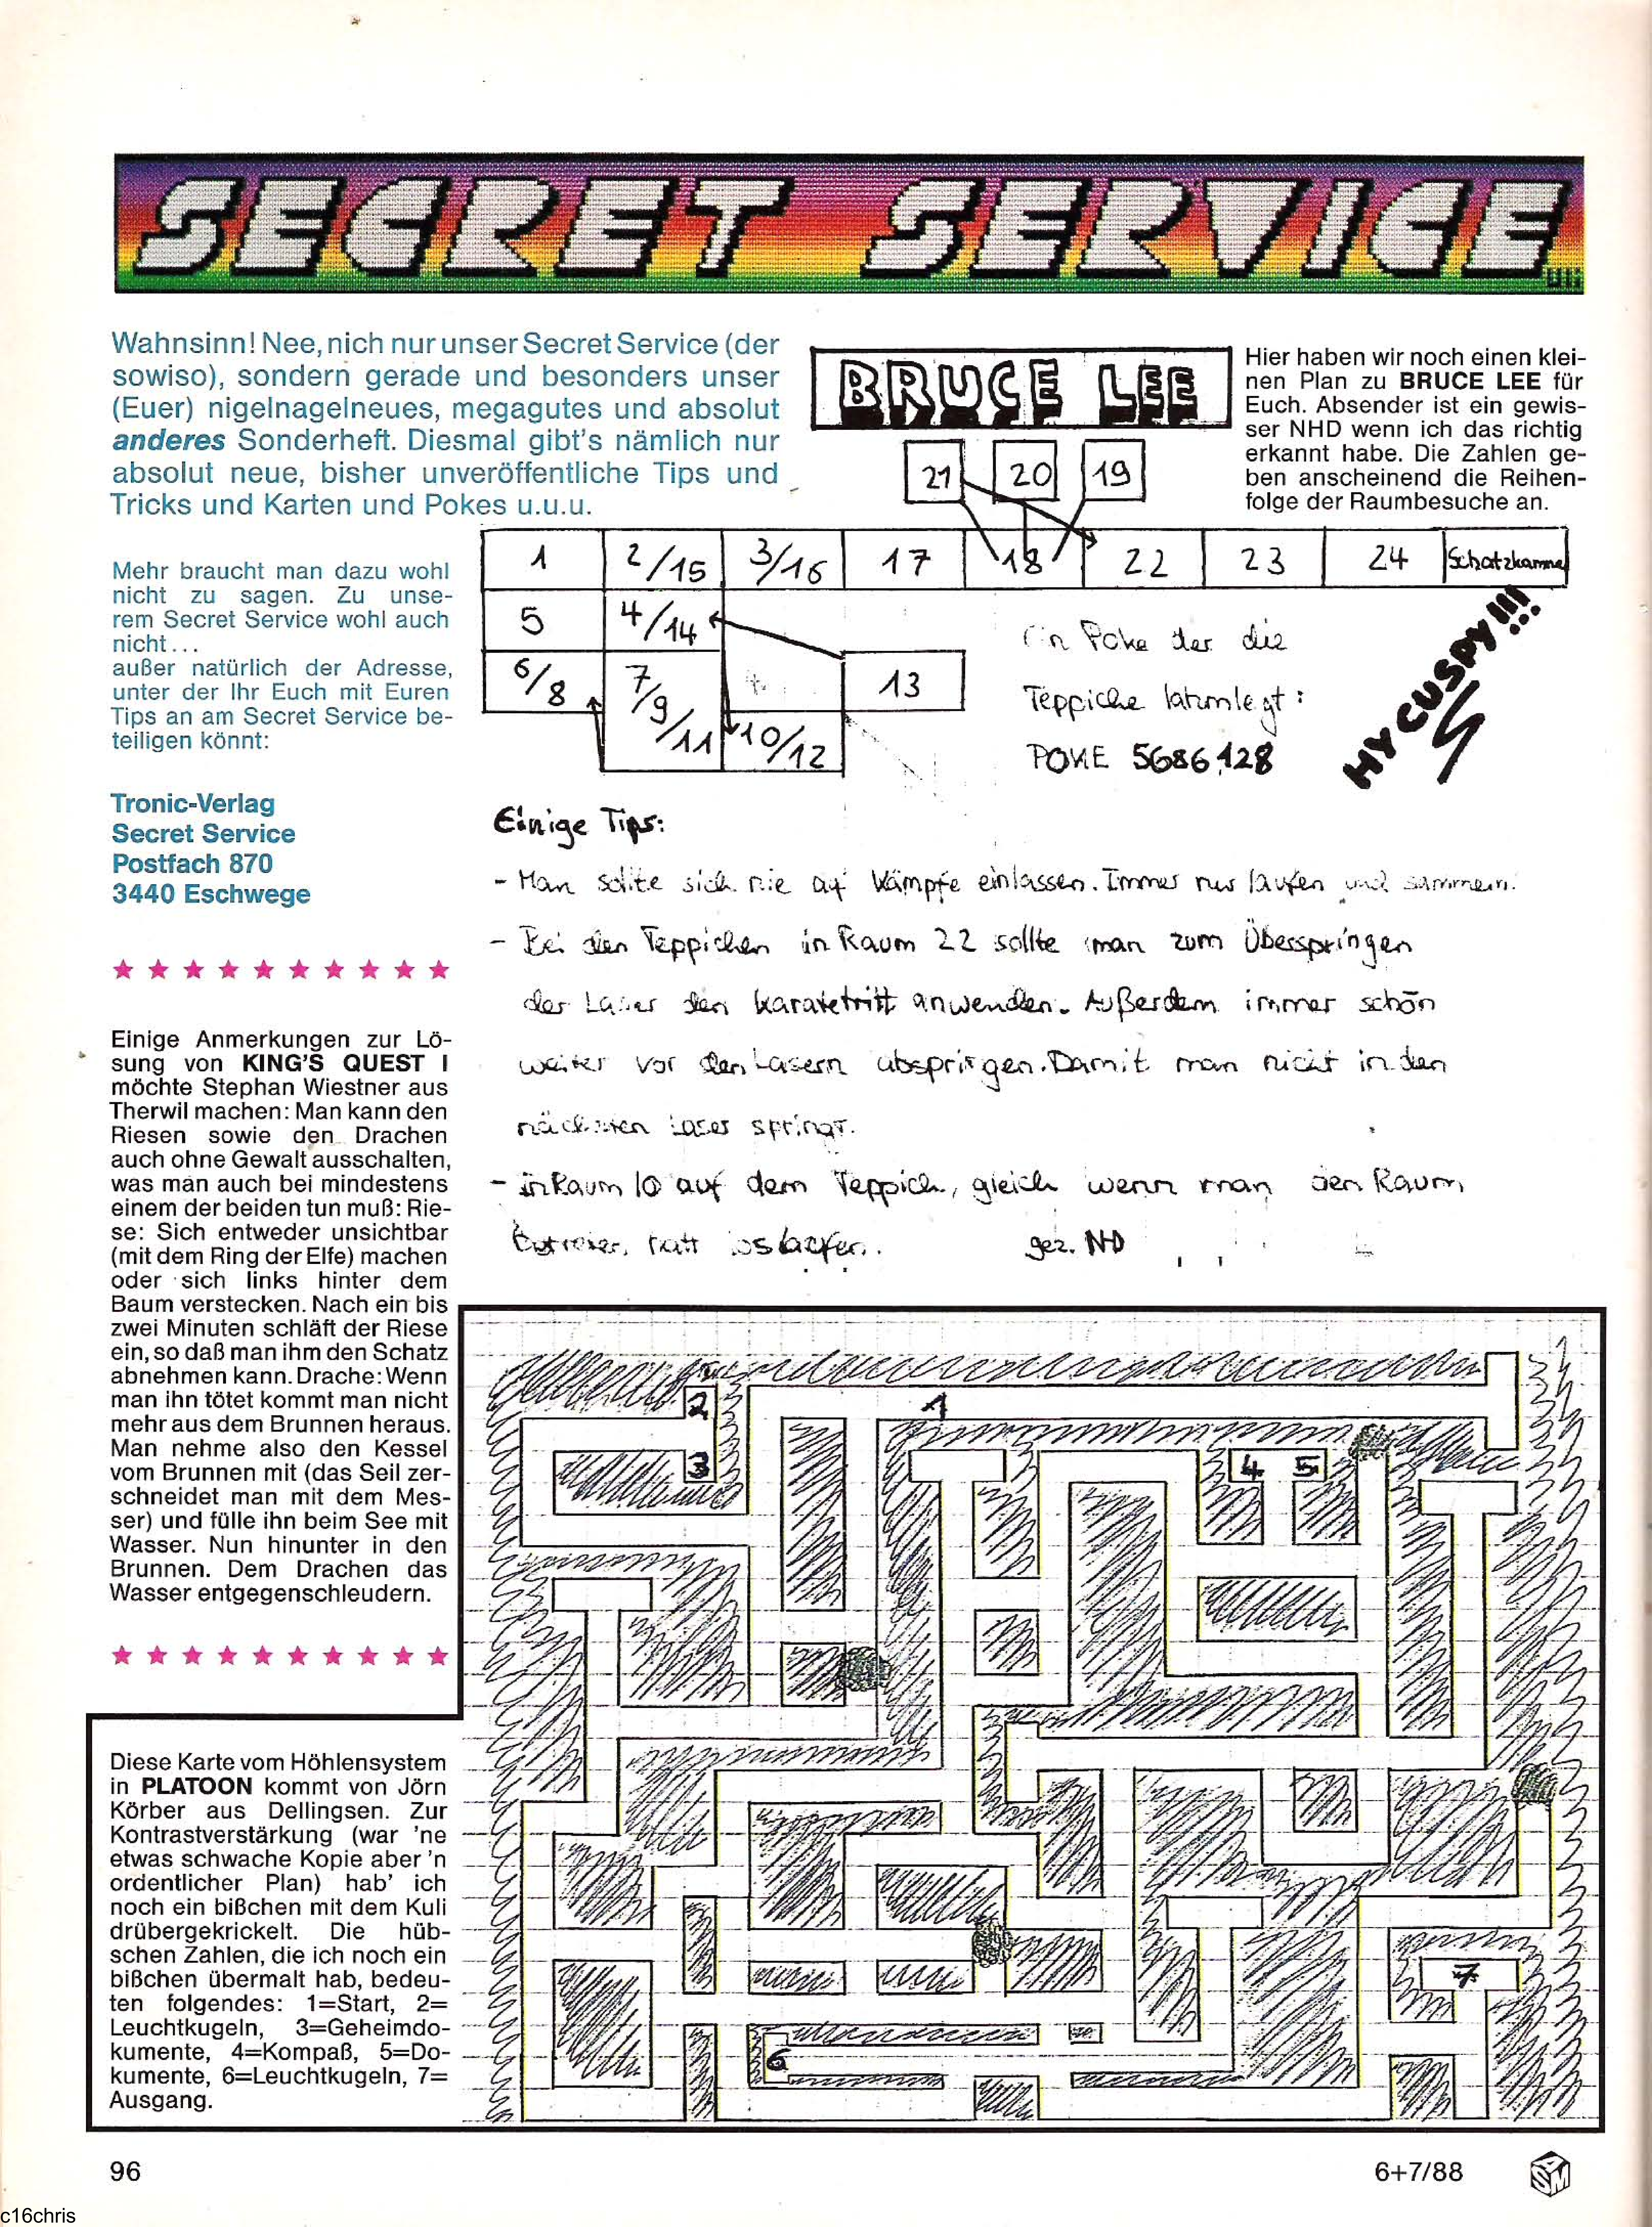 SECRET SERVICE
uli
Wahnsinn! Nee, nich nur unser Secret Service (der
sowiso), sondern gerade und besonders unser
(Euer) nigelnagelneues, megagutes und absolut
anderes Sonderheft. Diesmal gibt's nämlich nur
absolut neue, bisher unveröffentliche Tips und
Tricks und Karten und Pokes u.u.u.
Mehr braucht man dazu wohl
nicht zu sagen. Zu unse-
rem Secret Service wohl auch
nicht...
außer natürlich der Adresse,
unter der Ihr Euch mit Euren
Tips an am Secret Service be-
teiligen könnt:
Tronic-Verlag
Secret Service
Postfach 870
3440 Eschwege
Einige Anmerkungen zur Lö-
sung von KING'S QUEST I
möchte Stephan Wiestner aus
Therwil machen: Man kann den
Riesen sowie den Drachen
auch ohne Gewalt ausschalten,
was man auch bei mindestens
einem der beiden tun muß: Rie-
se: Sich entweder unsichtbar
(mit dem Ring der Elfe) machen
oder sich links hinter dem
Baum verstecken. Nach ein bis
zwei Minuten schläft der Riese
ein, so daß man ihm den Schatz
abnehmen kann. Drache: Wenn
man ihn tötet kommt man nicht
mehr aus dem Brunnen heraus.
Man nehme also den Kessel
vom Brunnen mit (das Seil zer-
schneidet man mit dem Mes-
ser) und fülle ihn beim See mit
Wasser. Nun hinunter in den
Brunnen. Dem Drachen das
Wasser entgegenschleudern.
BRUCE LEE
Hier haben wir noch einen klei-
nen Plan zu BRUCE LEE für
Euch. Absender ist ein gewis-
ser NHD wenn ich das richtig
erkannt habe. Die Zahlen ge-
ben anscheinend die Reihen-
folge der Raumbesuche an.
21 20 19
1 2/15 3/16 17 18 22 23 24 Schatzkamme
5 4/14
6/8 7/9/11 13
10/12
Ein Poke der die
Teppiche lahmlegt:
POKE 5686,128
HY CUSPY!!!
Einige Tips:
- Man sollte sich nie auf Kämpfe einlassen. Immer nur laufen und sammeln.
- Bei den Teppichen in Raum 22 sollte man zum Überspringen
der Laser den Karatetritt anwenden. Außerdem immer schön
weiter vor den Lasern abspringen. Damit man nicht in den
nächsten Laser springt.
- in Raum 10 auf dem Teppich, gleich wenn man den Raum
loslaufen. gez. ND
2
1
3
4 5
7
6
Diese Karte vom Höhlensystem
in PLATOON kommt von Jörn
Körber aus Dellingsen. Zur
Kontrastverstärkung (war 'ne
etwas schwache Kopie aber 'n
ordentlicher Plan) hab' ich
noch ein bißchen mit dem Kuli
drübergekrickelt. Die hüb-
schen Zahlen, die ich noch ein
bißchen übermalt hab, bedeu-
ten folgendes: 1=Start, 2=
Leuchtkugeln, 3=Geheimdo-
kumente, 4=Kompaß, 5=Do-
kumente, 6=Leuchtkugeln, 7=
Ausgang.
96
6+7/88
ASM
c16chris